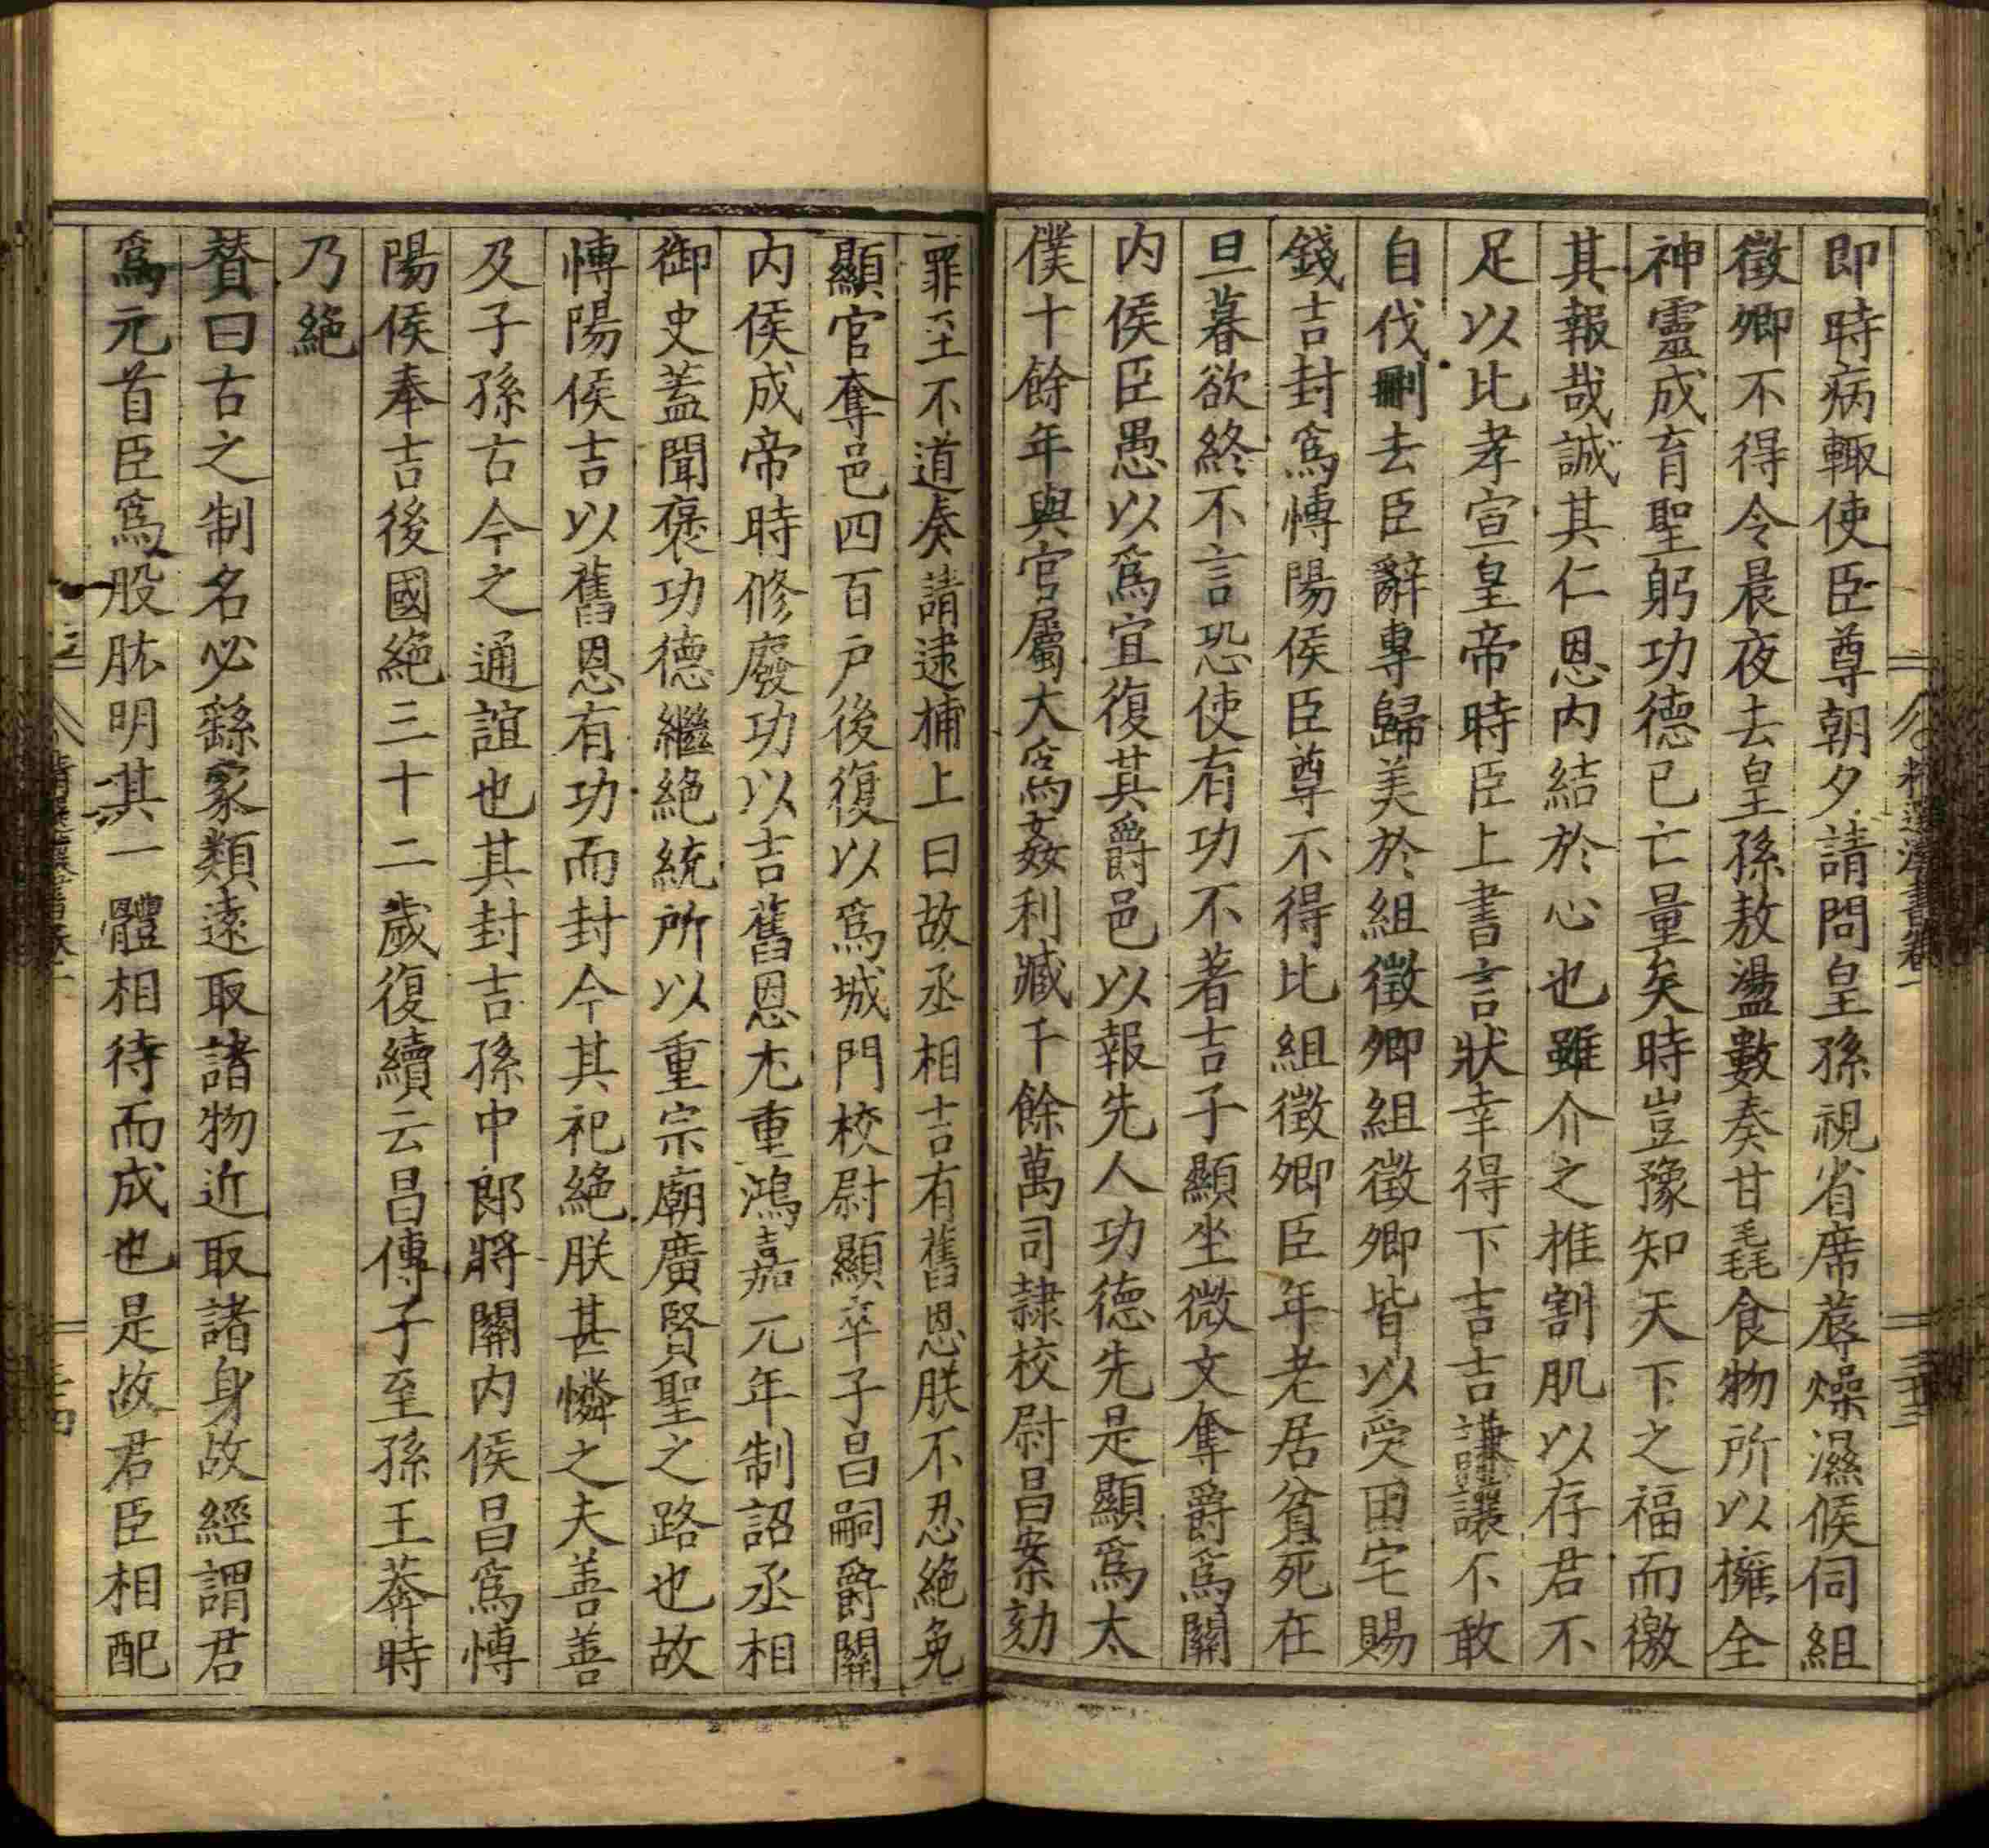 即時病輙使臣尊朝夕請問皇孫視省席蓐燥濕候伺組
徵卿不得令晨夜去皇孫敖盪數奏甘毳食物所以擁全
神靈成育聖躬功德已亡量矣時豈豫知天下之福而徼
其報哉誠其仁恩内結於心也雖介之推割肌以存君不
足以比孝宣皇帝時臣上書言狀幸得下吉吉謙讓不敢
自伐刪去臣辭專歸美於組徵卿組徵卿皆以受田宅賜
錢吉封爲愽陽侯臣尊不得比組徵卿臣年老居貧死在
旦暮欲終不言恐使有功不著吉子顯坐微文奪爵爲關
内侯臣愚以爲宜復其爵邑以報先人功德先是顯爲太
僕十餘年與官屬大爲姦利臧千餘萬司隸校尉昌案劾
罪至不道奏請逮捕上曰故丞相吉有舊恩朕不忍絶免
顯官奪邑四百户後復以爲城門校尉顯卒子昌嗣爵關
内侯成帝時修廢功以吉舊恩尤重鴻嘉元年制詔丞相
御史蓋聞褒功德繼絶統所以重宗廟廣賢聖之路也故
愽陽侯吉以舊恩有功而封今其祀絶朕甚憐之夫善善
及子孫古今之通誼也其封吉孫中郎將關内侯昌爲愽
陽侯奉吉後國絶三十二歲復續云昌傳子至孫王莽時
乃絶
賛曰古之制名必繇象類遠取諸物近取諸身故經謂君
爲元首臣爲股肱明其一體相待而成也是故君臣相配